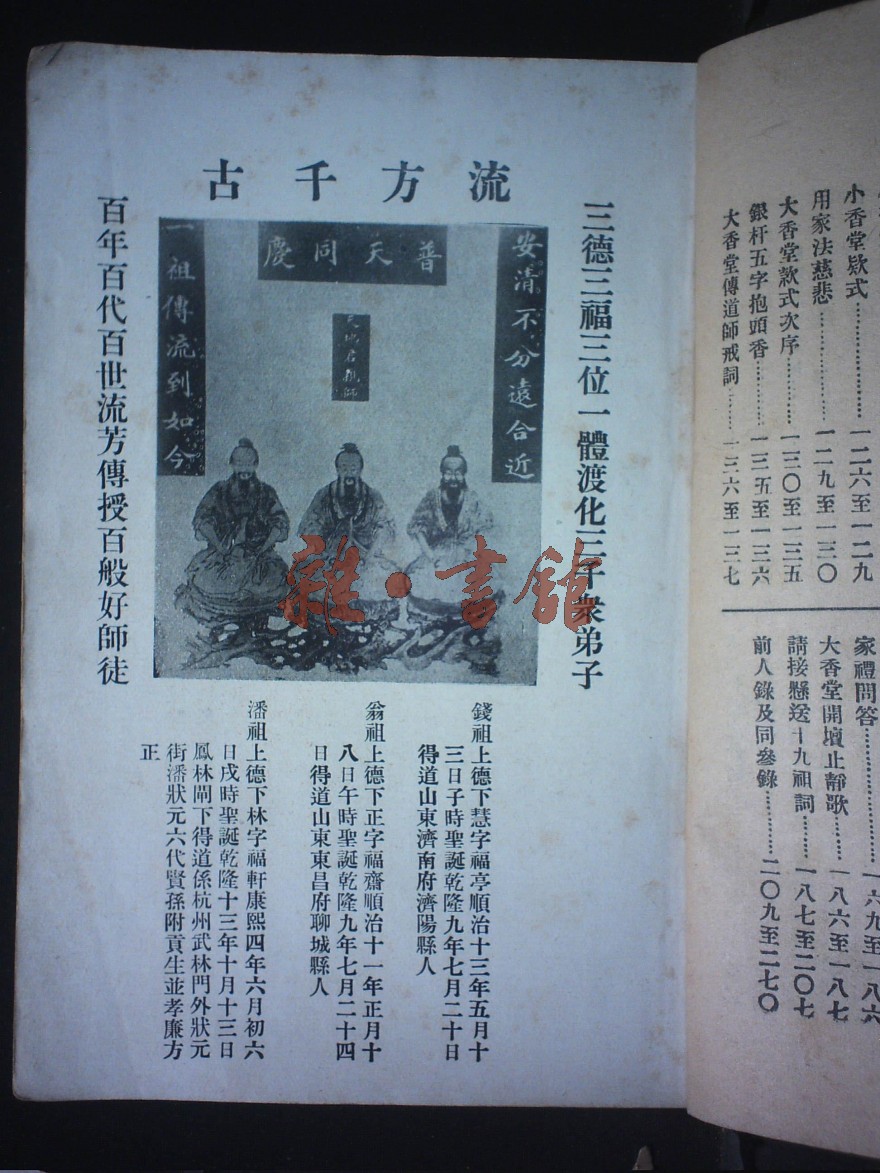 流方千古
三德三福三位一體渡化三千衆弟子
百年百代百世流芳傳授百般好師徒
普天同慶
安清不分遠合近
一祖傳流到如今
天地君親師
雜·書館
錢祖上德下慧字福亭順治十三年五月十
三日子時聖誕乾隆九年七月二十日
得道山東濟南府濟陽縣人
翁祖上德下正字福齋順治十一年正月十
八日午時聖誕乾隆九年七月二十四
日得道山東東昌府聊城縣人
潘祖上德下林字福軒康熙四年六月初六
日戌時聖誕乾隆十三年十月十三日
鳳林閘下得道係杭州武林門外狀元
街潘狀元六代賢孫附貢生並孝廉方
正
小香堂欵式…………一二六至一二九
用家法慈悲…………一二九至一三〇
大香堂款式次序…………一三〇至一三五
銀杆五字抱頭香…………一三五至一三六
大香堂傳道師戒詞…………一三六至一三七
家禮問答…………一六九至一八六
大香堂開壇止靜歌…………一八六至一八七
請接懸送十九祖詞…………一八七至二〇七
前人錄及同參錄…………二〇九至二七〇